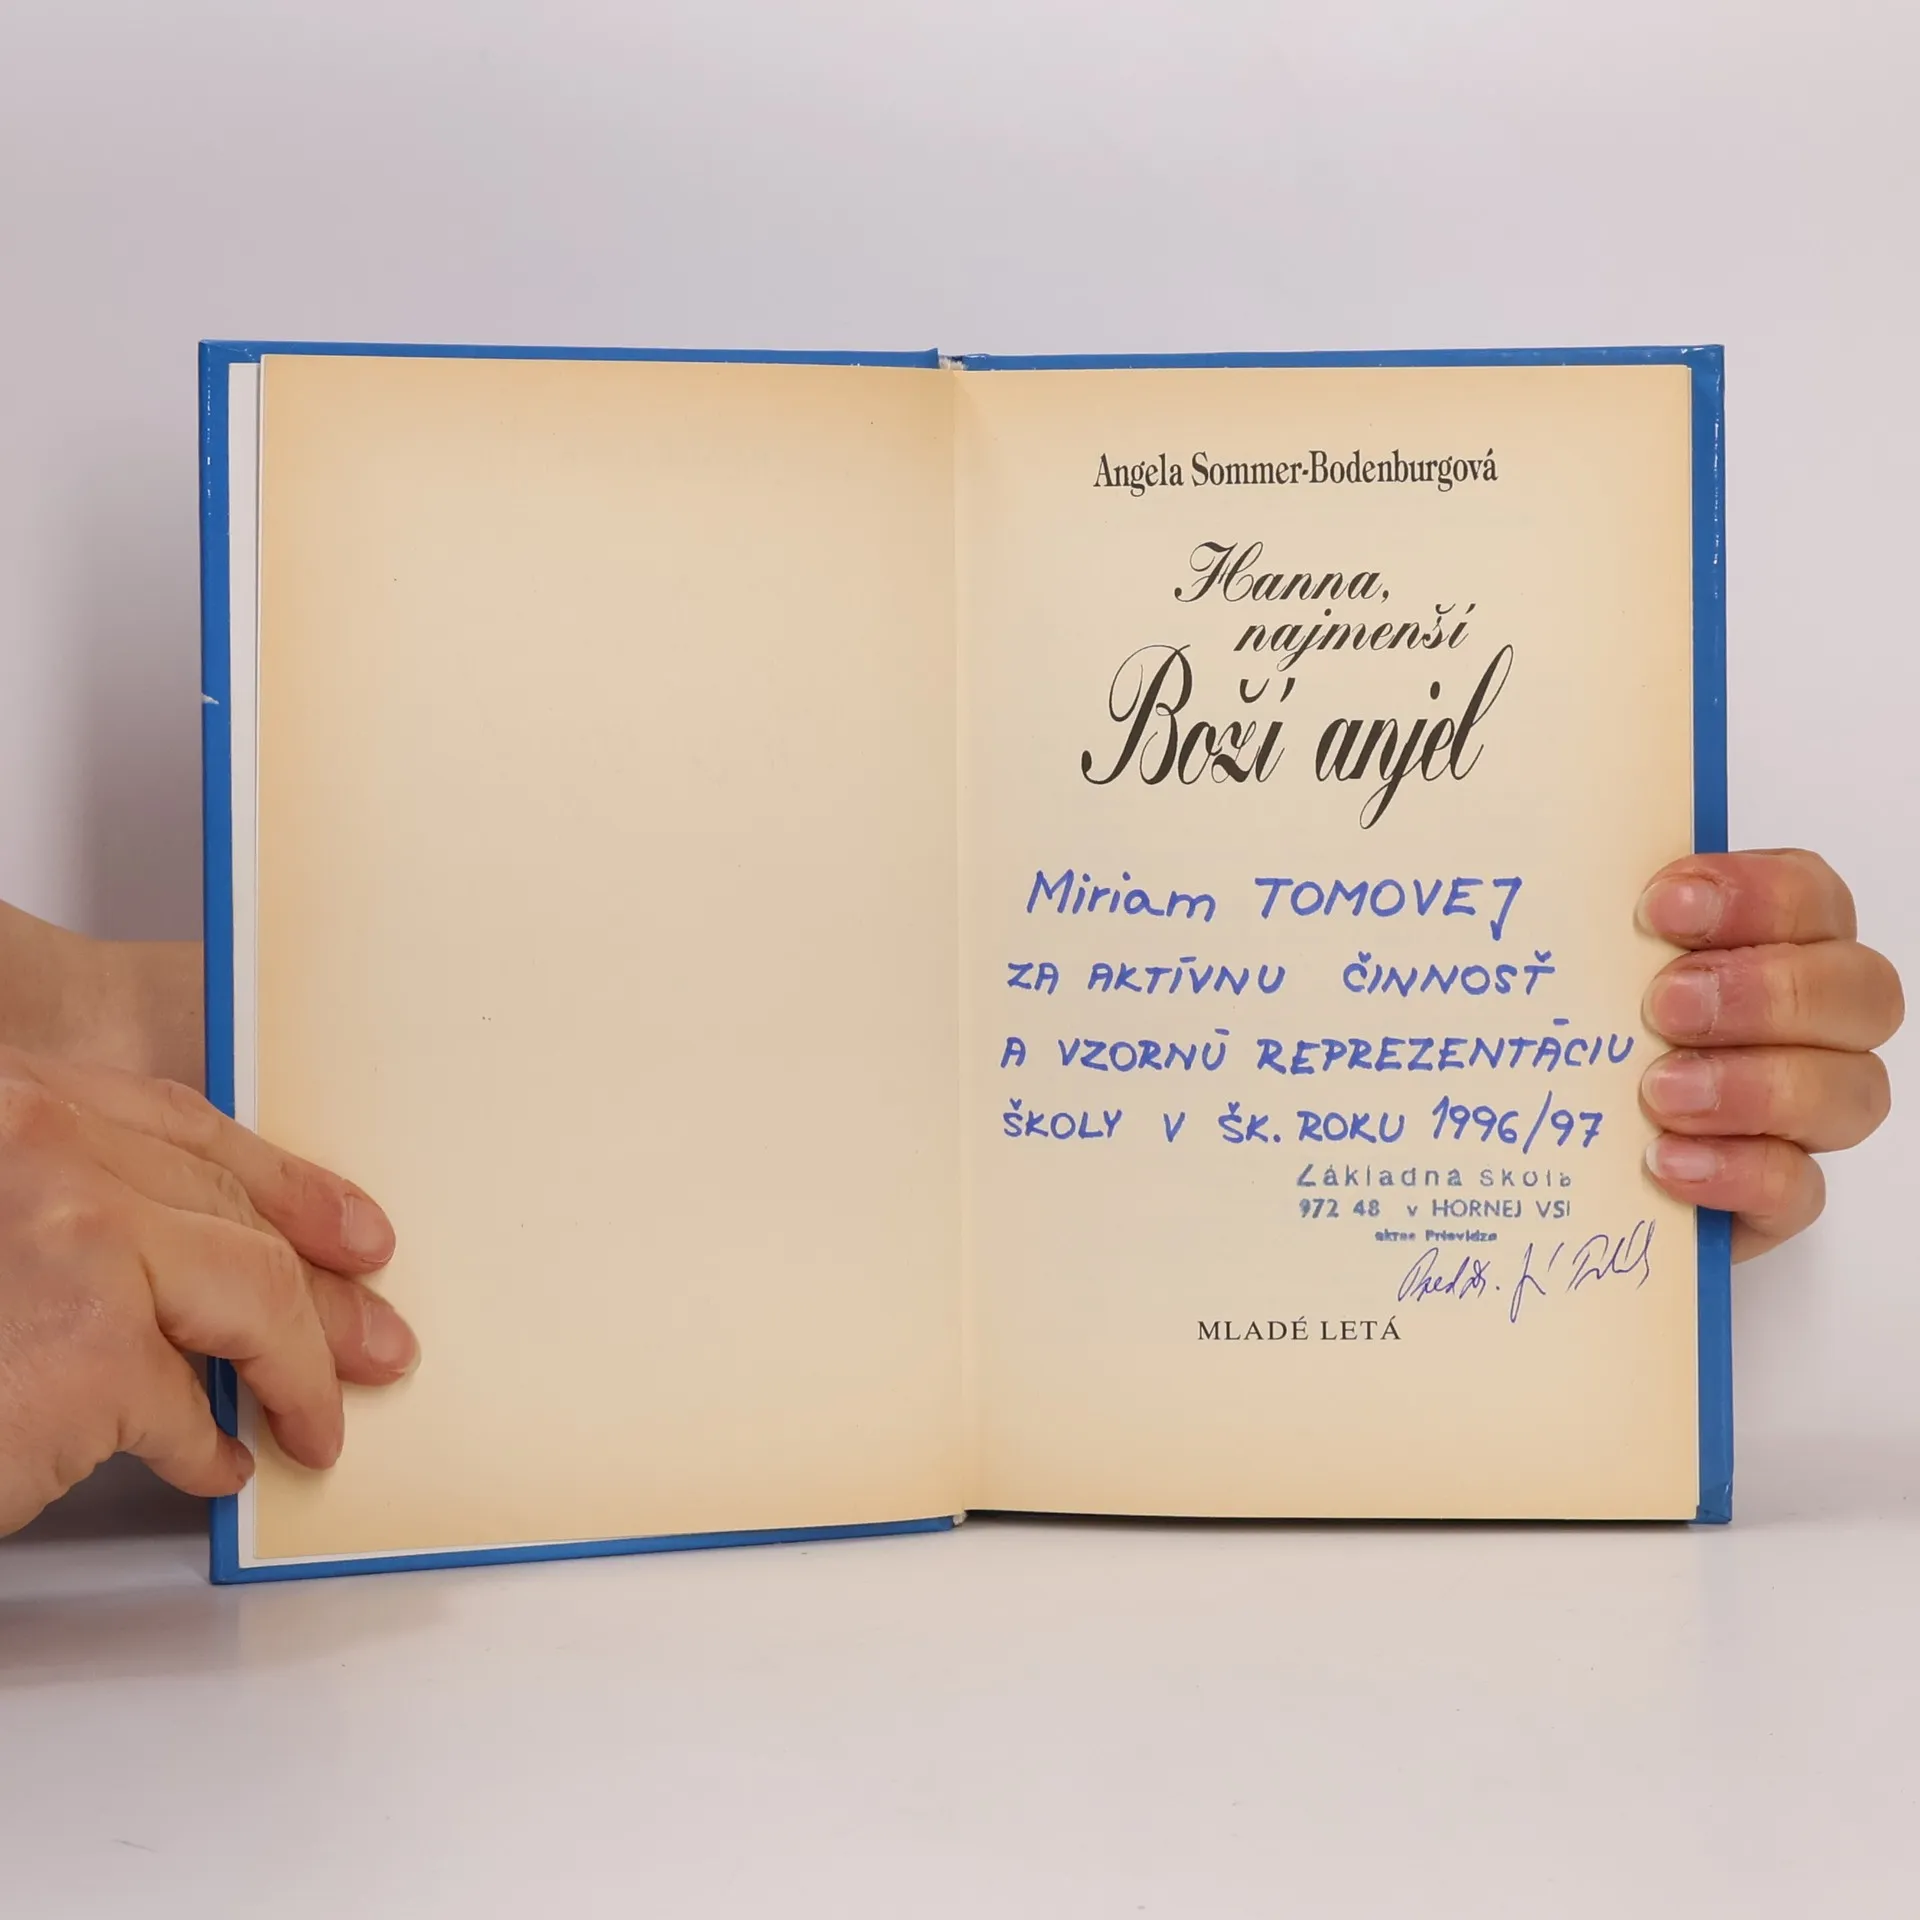 Angela Sommer-Bodenburgová
Hanna,
najmenší
Boží anjel
Miriam TOMOVEJ
ZA AKTÍVNU ČINNOSŤ
A VZORNÚ REPREZENTÁCIU
ŠKOLY V ŠK. ROKU 1996/97
Základná škola
972 48 v HORNEJ VSI
okres Prievidza
MLADÉ LETÁ